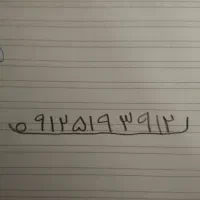 ۹۱۲۵۱۹۳۹۱۲